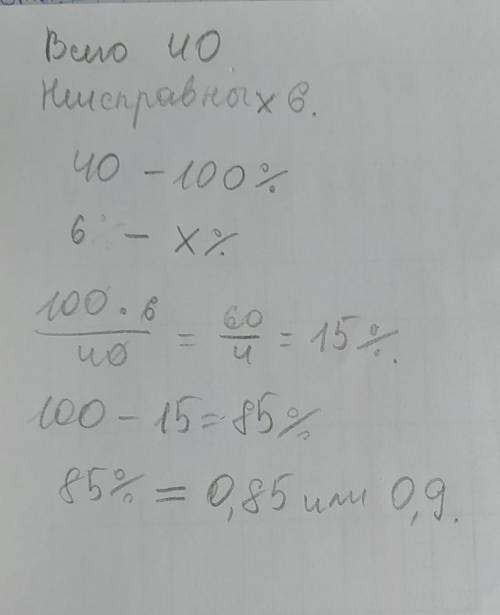 Всего 40
Неисправных 6.
40 - 100%
6 - x%
100 · 6 / 40 = 60 / 4 = 15%.
100 - 15 = 85%
85% = 0,85 или 0,9.